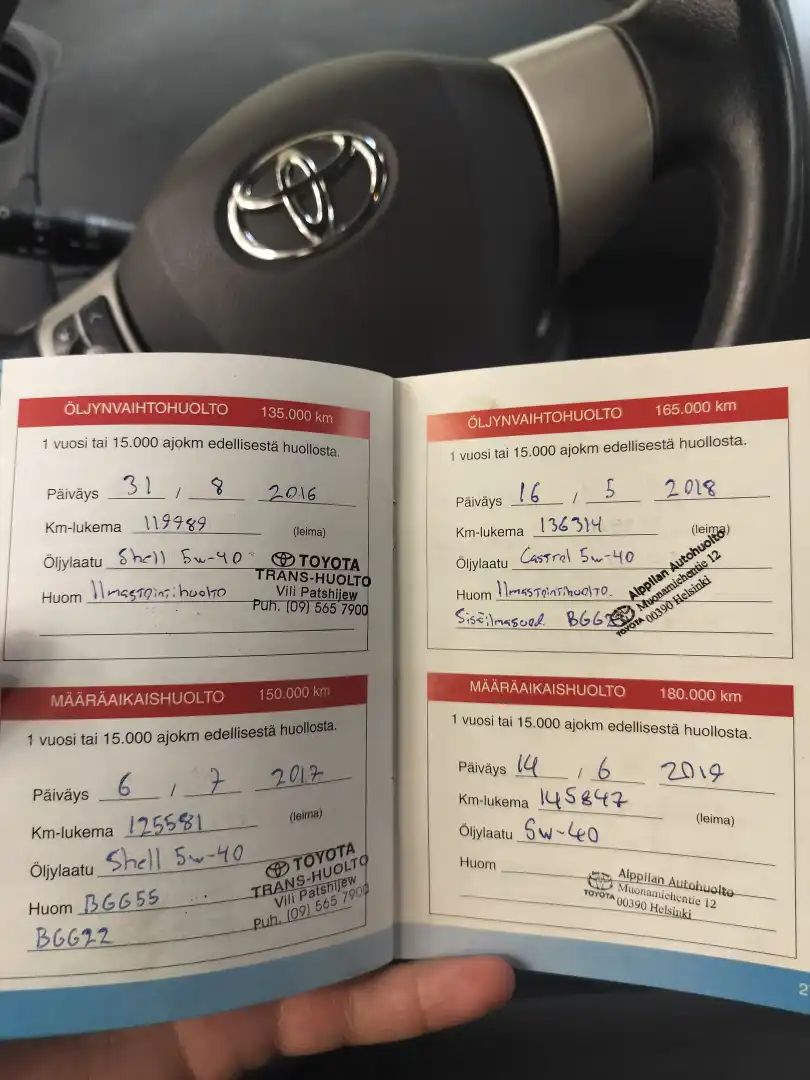 ÖLJYNVAIHTOHUOLTO 135.000 km
1 vuosi tai 15.000 ajokm edellisestä huollosta.
Päiväys 31 / 8 2016
Km-lukema 119989 (leima)
Öljylaatu Shell 5w-40
Huom Ilmastointihuolto
TOYOTA
TRANS-HUOLTO
Vili Patshijew
Puh. (09) 565 7900
MÄÄRÄAIKAISHUOLTO 150.000 km
1 vuosi tai 15.000 ajokm edellisestä huollosta.
Päiväys 6 / 7 2017
Km-lukema 125581 (leima)
Öljylaatu Shell 5w-40
Huom BGG55
BGG22
TOYOTA
TRANS-HUOLTO
Vili Patshijew
Puh. (09) 565 7900
ÖLJYNVAIHTOHUOLTO 165.000 km
1 vuosi tai 15.000 ajokm edellisestä huollosta.
Päiväys 16 / 5 2018
Km-lukema 136314 (leima)
Öljylaatu Castrol 5w-40
Huom Ilmastointihuolto.
Sisäilmasuod.
Alppilan Autohuolto
Muonamiehentie 12
TOYOTA 00390 Helsinki
MÄÄRÄAIKAISHUOLTO 180.000 km
1 vuosi tai 15.000 ajokm edellisestä huollosta.
Päiväys 14 / 6 2019
Km-lukema 145847 (leima)
Öljylaatu 5w-40
Huom
Alppilan Autohuolto
Muonamiehentie 12
TOYOTA 00390 Helsinki